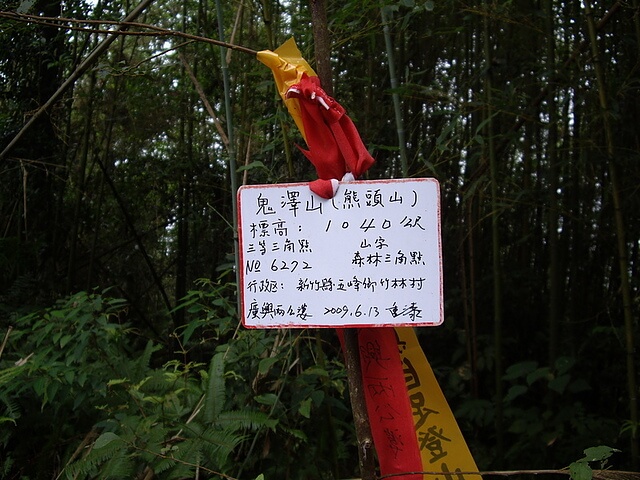 鬼澤山(熊頭山)
標高: 1040公尺
三等三角點 山字
№ 6272 森林三角點
行政区: 新竹縣五峰鄉竹林村
廣興 2009.6.13
登山